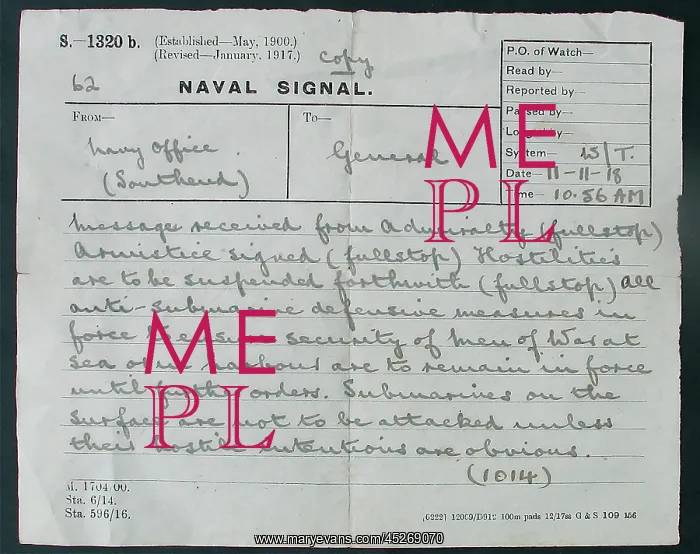 S.—1320 b. (Established—May, 1900.)
(Revised—January, 1917.)
copy
62
NAVAL SIGNAL.
P.O. of Watch—
Read by—
Reported by—
Passed by—
Logged by—
System— W/T.
Date— 11-11-18
Time— 10.56 AM
FROM—
Navy Office
(Southend)
TO—
General
Message received from Admiralty (fullstop)
Armistice signed (fullstop) Hostilities
are to be suspended forthwith (fullstop) all
anti-submarine defensive measures in
force security of Men of War at
sea or in harbour are to remain in force
until further orders. Submarines on the
surface are not to be attacked unless
their hostile intentions are obvious.
(1014)
M. 1704/00.
Sta. 6/14.
Sta. 596/16.
(6222) 12009/D912 100m pads 12/17 G & S 109 156
ME
PL
ME
PL
www.maryevans.com/45269070